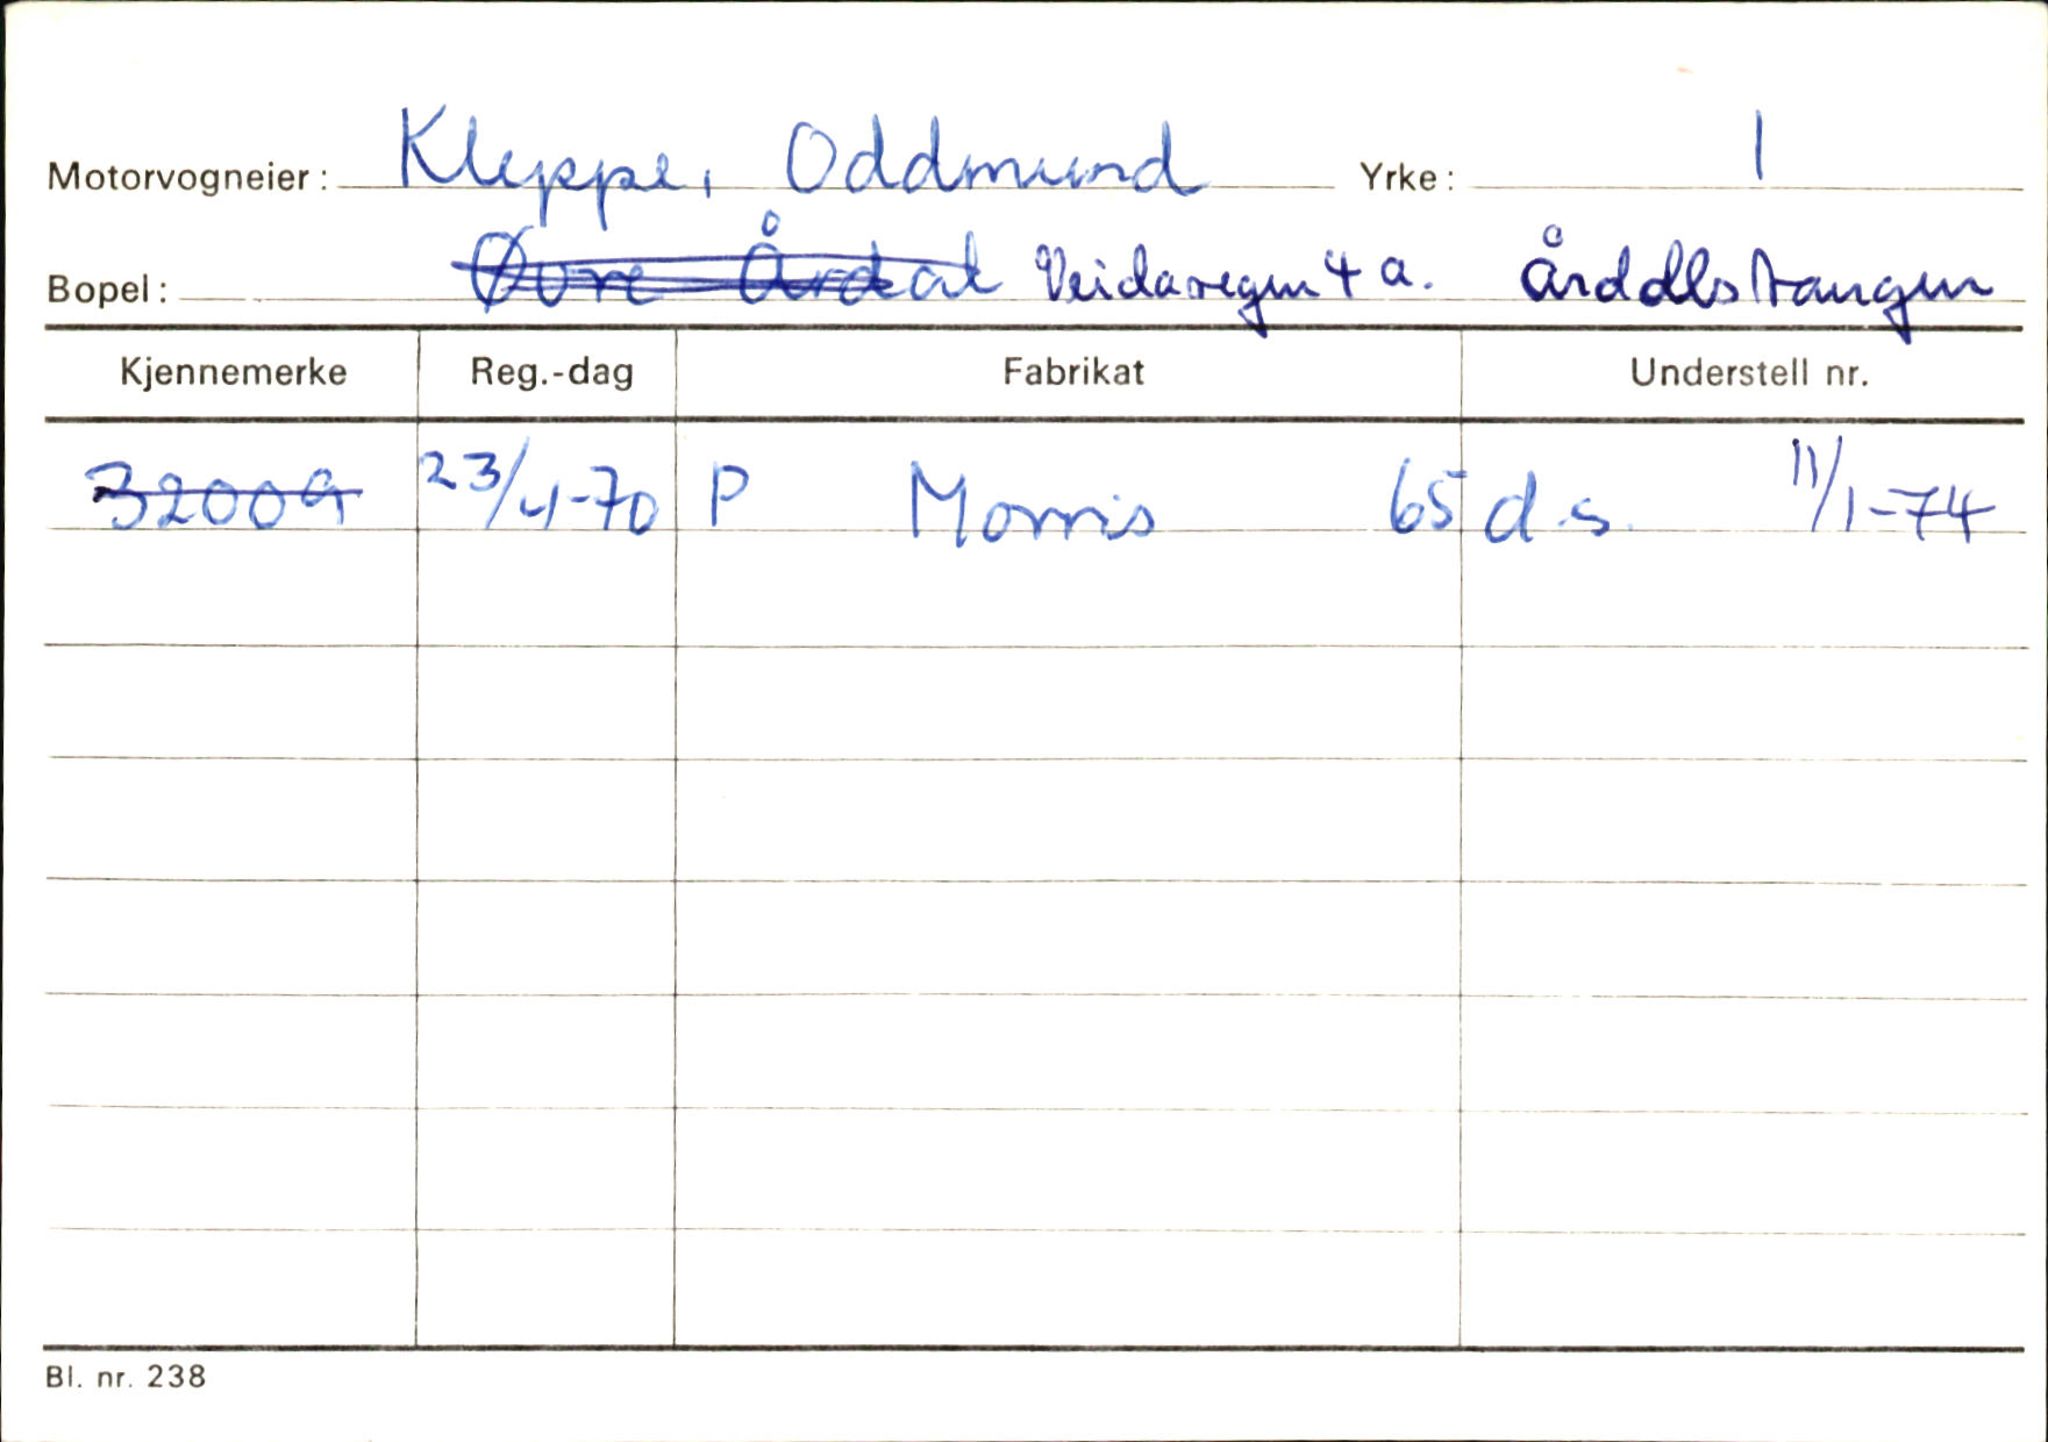 Motorvogneier: Kleppe, Oddmund Yrke: 1
Bopel: Øvre Årdal Veidaregen 4 a. Årdalstangen
Kjennemerke Reg.-dag Fabrikat Understell nr.
32009 23/4-70 P Morris 65 d.s. 11/1-74
Bl. nr. 238